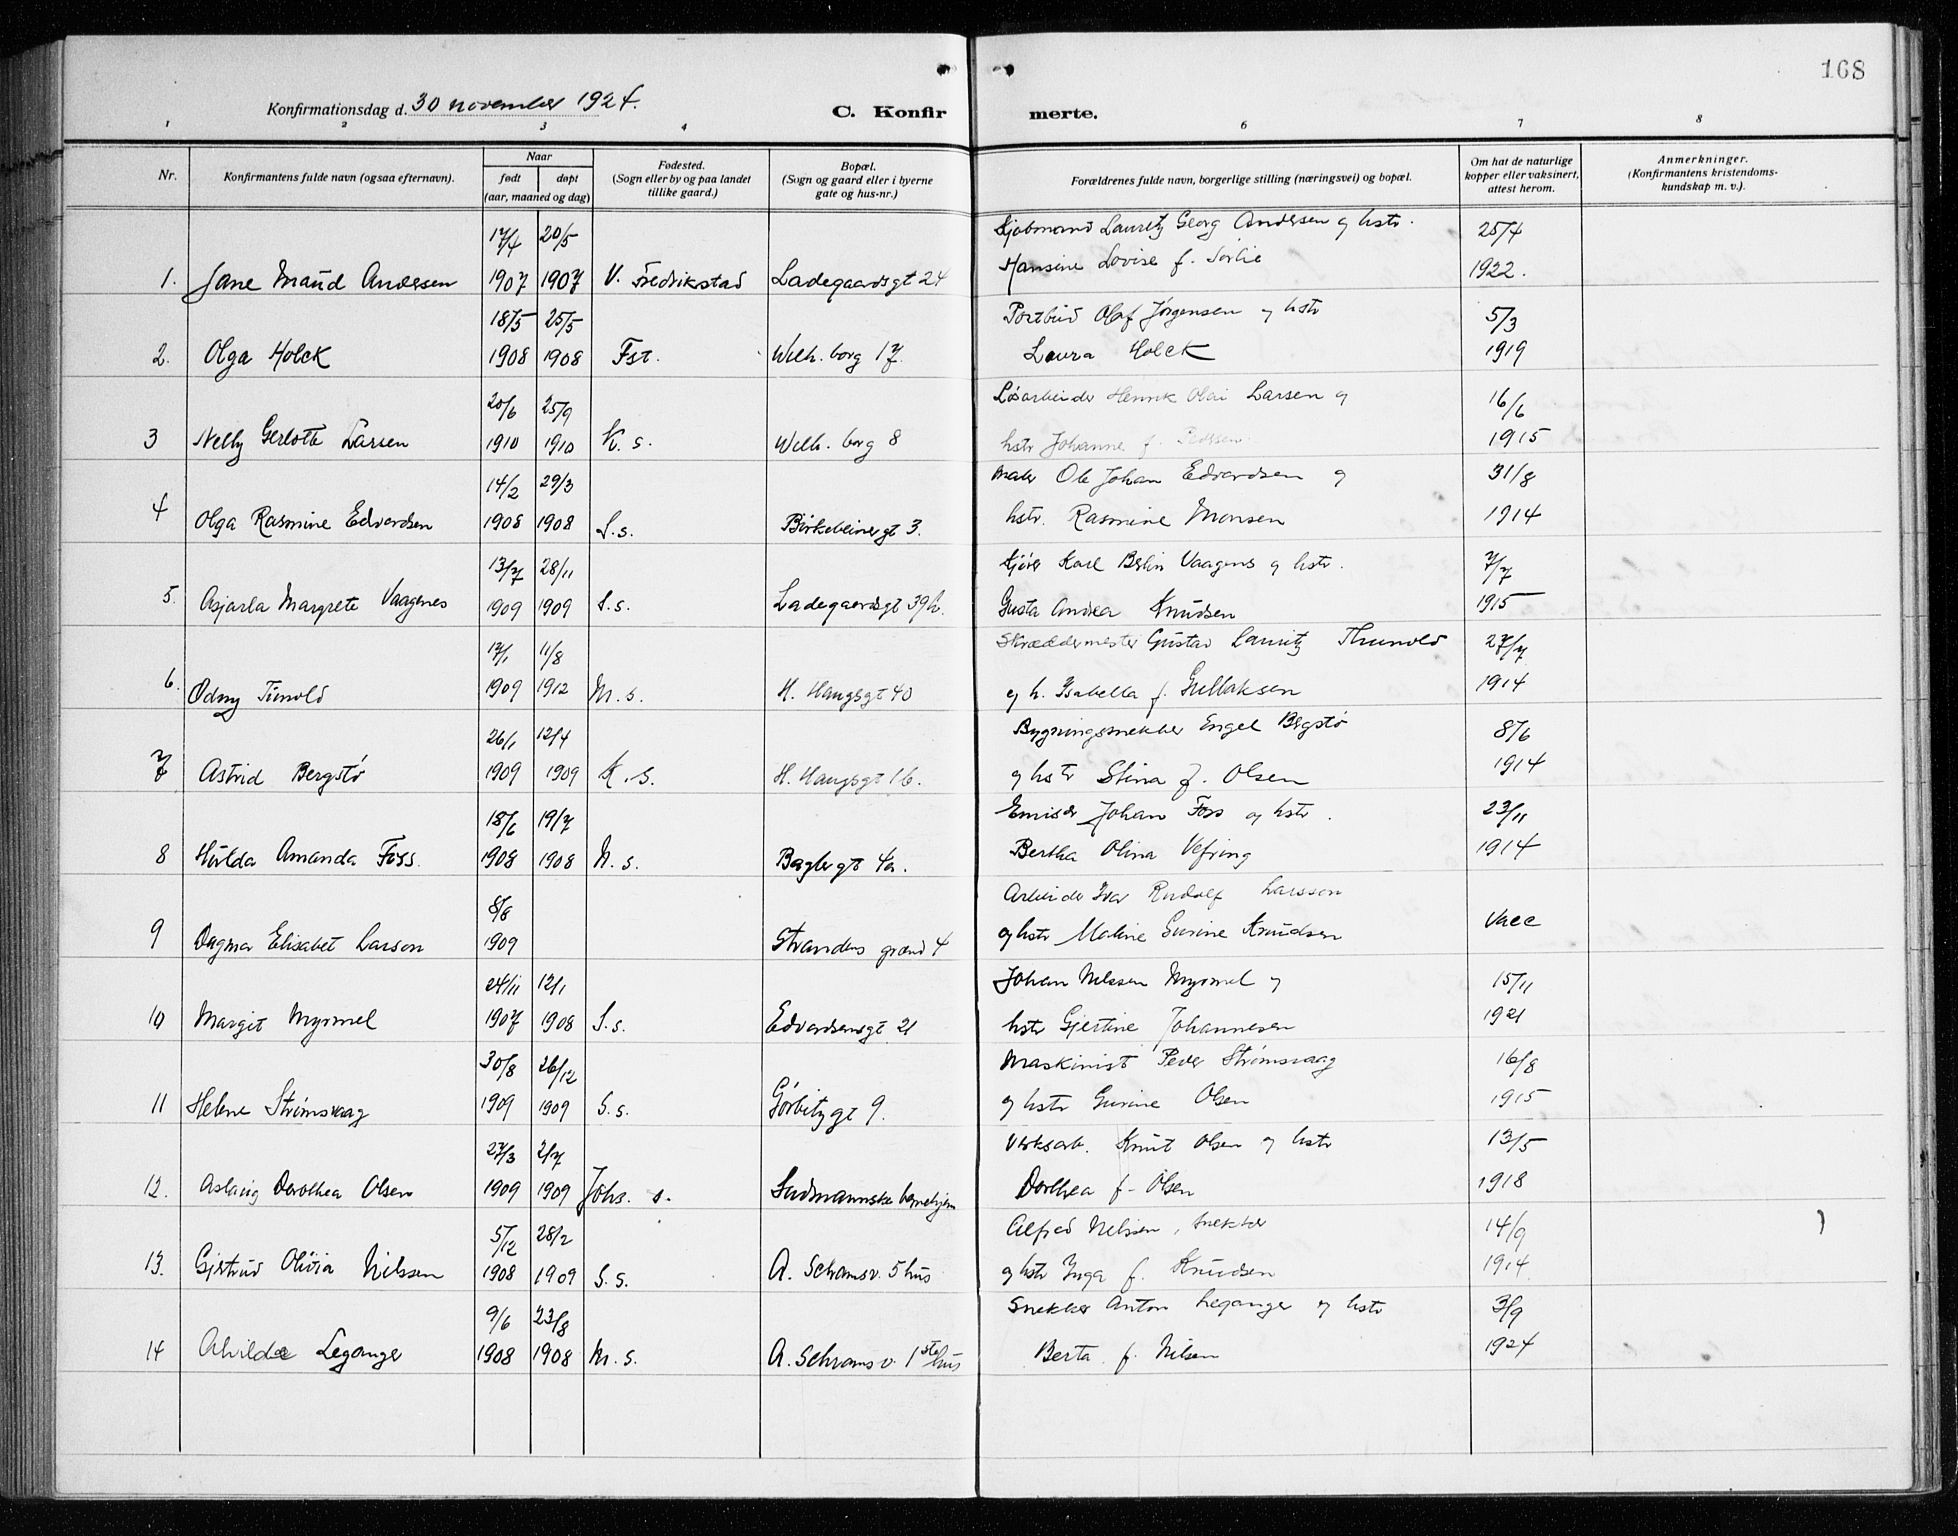 168
Konfirmationsdag d. 30 november 1924.
C. Konfirmerte.
1 2 3 4 6 7 8
Nr. Konfirmantens fulde navn (ogsaa efternavn). Naar født døpt (aar, maaned og dag) Fødested. (Sogn eller by og paa landet tillike gaard.) Bopæl. (Sogn og gaard eller i byerne gate og hus-nr.) Forældrenes fulde navn, borgerlige stilling (næringsvei) og bopæl. Om hat de naturlige kopper eller vaksinert, attest herom. Anmerkninger. (Konfirmantens kristendomskundskap m. v.).
17/4 20/5 Kjøbmand Lauritz Georg Andersen og hstr. 25/4
1. Jane Maud Andersen 1907 1907 V. Fredrikstad Ladegaardsgt 24 Hansine Lovise f. Sørlie 1922.
18/5 25/5 Portbud Olaf Jørgensen og hstr 5/3
2. Olga Holck 1908 1908 Fst. Wilh. borg 17. Laura Holck 1919
20/6 25/9 Løsarbeider Henrik Olai Larsen og 16/6
3 Nelly Gerlotte Larsen 1910 1910 K. s. Wilh. borg 8 hstr Johanne f. Pedersen 1915
14/2 29/3 Maler Ole Johan Edvardsen og 31/8
4 Olga Rasmine Edvardsen 1908 1908 S.s. Birkebeinergt 3. hstr. Rasmine Monsen 1914
13/7 28/11 Kjører Karl Berlin Vaagenes og hstr. 7/7
5. Asjarla Margrete Vaagenes 1909 1909 S.s. Ladegaardsgt 39b. Gusta Andrea Knudsen 1915
17/1 11/8 Skræddermester Gustav Lauritz Thunold 27/7
6. Odny Tunold 1909 1912 M. s. H. Haugsgt 40 og h. Isabella f. Gullaksen 1914
26/1 12/4 Bygningssnekker Engel Bergstø 8/6
7 Astrid Bergstø 1909 1909 K. s. H. Haugsgt 16. og hstr Stina f. Olsen 1914
18/6 19/7 Emisær Johan Foss og hstr. 23/11
8 Hulda Amanda Foss. 1908 1908 N. s. Baglergt 4a. Bertha Olina Vefring 1914
8/8 Arbeider Ivar Rudolf Larsson
9 Dagmar Elisabet Larson 1909 Strandens grænd 4 og hstr Maline Gurine Knudsen Vacc
24/11 12/1 Johan Nilssen Myrmel og 15/11
10 Margit Myrmel 1907 1908 S.s. Edvardsensgt 21 hstr Gjertine Johannesen 1921
30/8 26/12 Maskinist Peder Strømsvaag 16/8
11 Helene Strømsvaag 1909 1909 S.s. Gørbitzgt 9. og hstr Gurine Olsen 1915
27/3 2/7 Verksarb. Knut Olsen og hstr 13/5
12. Aslaug Dorothea Olsen 1909 1909 Johs. s. Sudmannske barnehjem Dorthea f. Olsen 1918
5/12 28/2 Alfred Nilssen, snekker 14/9
13. Gjertrud Olivia Nilssen 1908 1909 S.s. A. Schramsv. 5 hus og hstr Inga f. Knudsen 1914
9/6 23/8 Snekker Anton Leganger og hstr 3/9
14 Alvilde Leganger 1908 1908 M. s. A. Schrams v. 1ste hus Berta f. Nilsen 1924